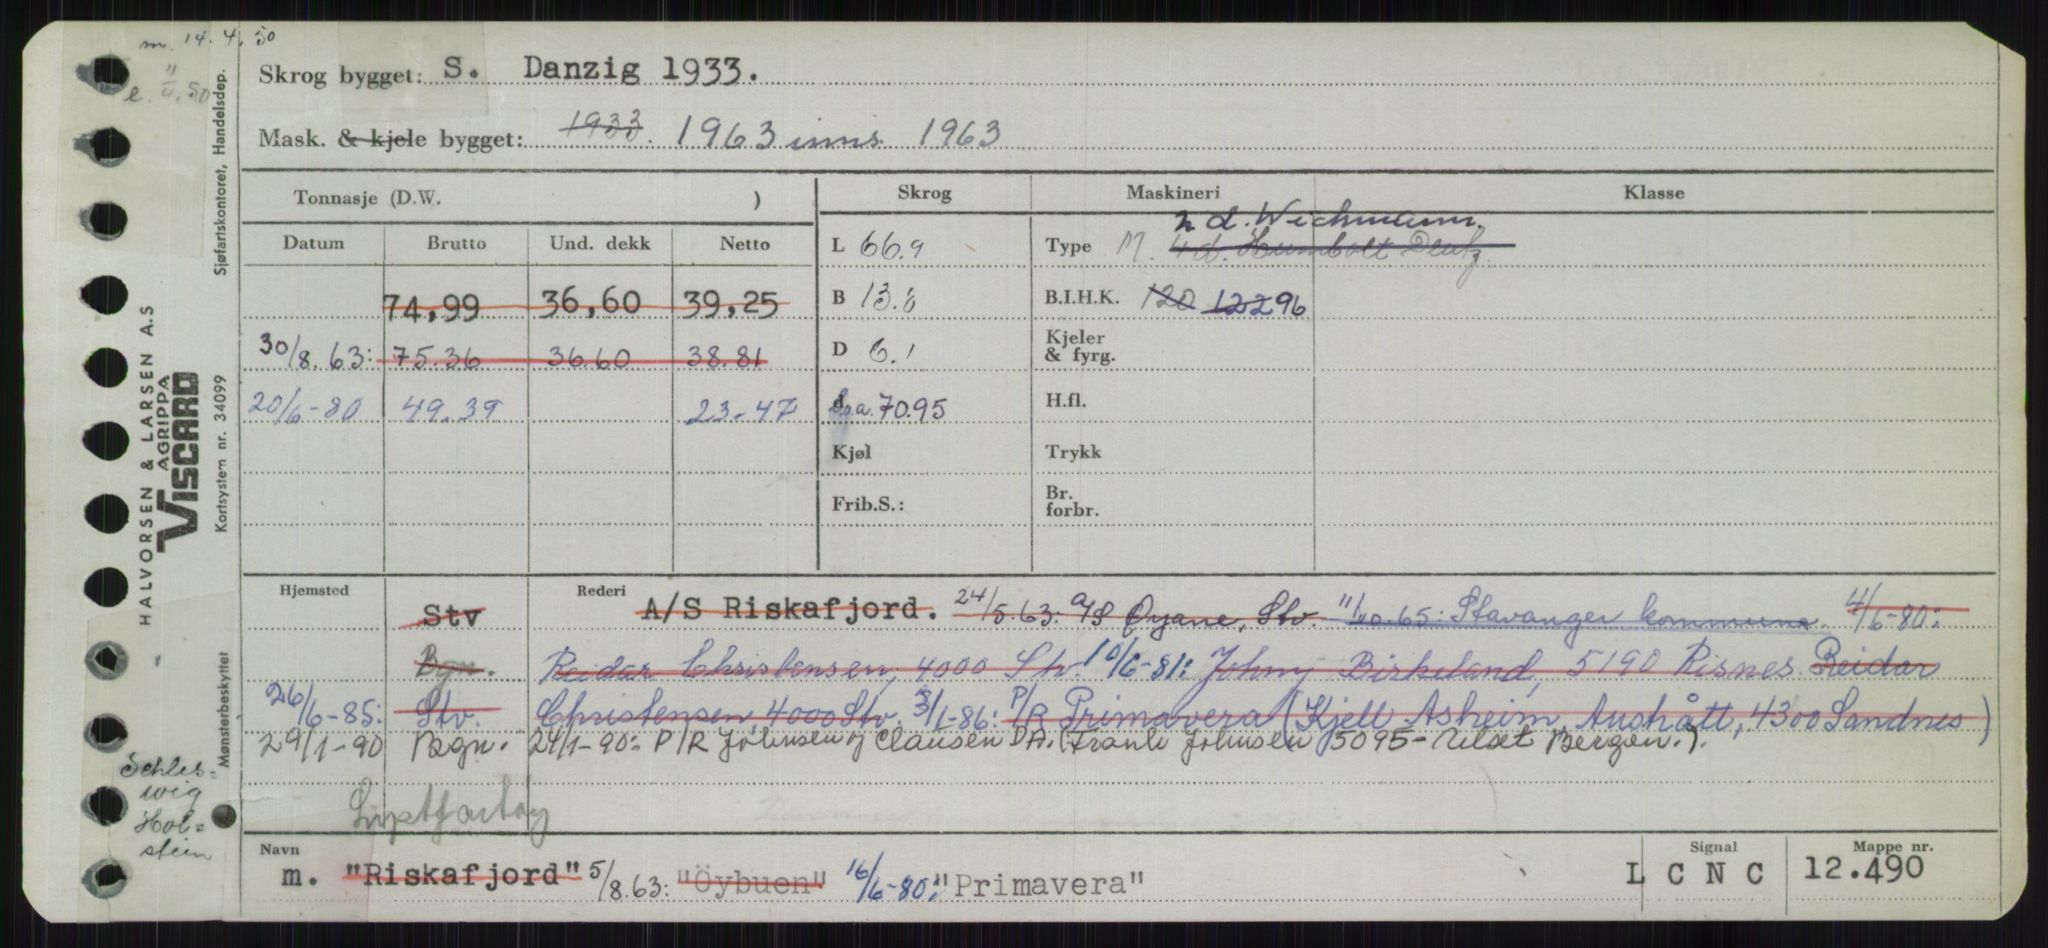 m. 14.4.50
e. 11/4.50
Skrog bygget: S. Danzig 1933.
Mask. & kjele bygget: 1933. 1963 inns. 1963
Tonnasje (D.W. )
Skrog
Maskineri
Klasse
Datum Brutto Und. dekk Netto
L 66.9
Type M. 4 d. Humbolt Deutz 2 d. Wichmann.
74,99 36,60 39,25
B 13.8
B.I.H.K. 120 122 96
30/8.63: 75.36 36.60 38.81
D 6.1
Kjeler & fyrg.
20/6-80 49.39 23.47
d l.o.a. 70.95
H.fl.
Kjøl
Trykk
Frib.S.:
Br. forbr.
Hjemsted
Rederi
Stv A/S Riskafjord. 24/5.63: A/S Øyane, Stv. 11/10.65: Stavanger kommune. 4/6-80:
Bgn. Reidar Christensen, 4000 Stv. 10/6-81: Johny Birkeland, 5190 Risnes Reidar
26/6-85: Stv. Christensen 4000 Stv. 3/1-86: P/R Primavera (Kjell Asheim, Aushått, 4300 Sandnes)
29/1-90 Bgn. 29/1-90: P/R Johnsen og Clausen DA. (Frank Johnsen 5095 - Ulset Bergen.).
Lystfartøy
Navn
m. "Riskafjord" 5/8.63: "Öybuen" 16/6-80: "Primavera"
Signal
L C N C
Mappe nr.
12.490
Sjøfartskontoret, Handelsdep.
HALVORSEN & LARSEN A.S
AGRIPPA
VISCARD
Kortsystem nr. 34099
Mønsterbeskyttet
Schles-
wig
Hol-
stein